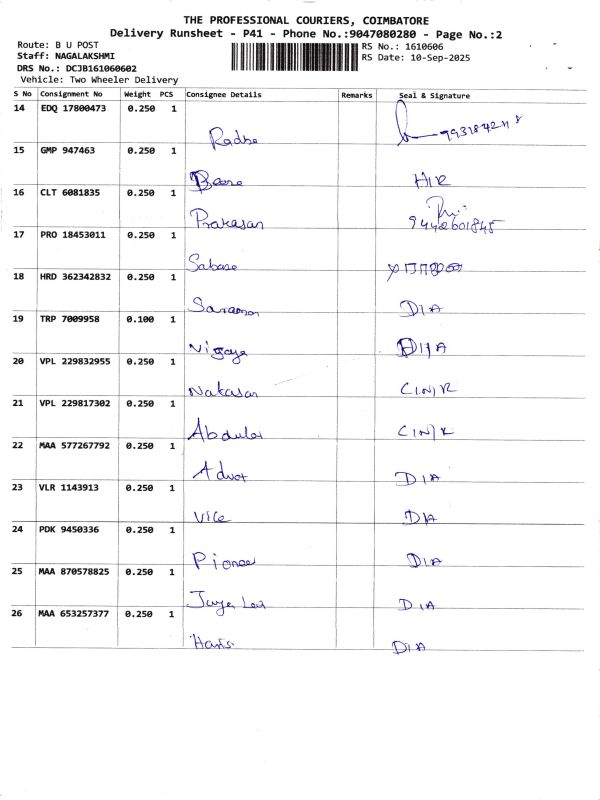 THE PROFESSIONAL COURIERS, COIMBATORE
Delivery Runsheet - P41 - Phone No.:9047080280 - Page No.:2
Route: B U POST
RS No.: 1610606
Staff: NAGALAKSHMI
RS Date: 10-Sep-2025
DRS No.: DCJB161060602
Vehicle: Two Wheeler Delivery
S No Consignment No Weight PCS Consignee Details Remarks Seal & Signature
14 EDQ 17800473 0.250 1
Radhe
15 GMP 947463 0.250 1
H/R
16 CLT 6081835 0.250 1
Prakasan 9442601845
17 PRO 18453011 0.250 1
Sabase
18 HRD 362342832 0.250 1
D/A
19 TRP 7009958 0.100 1
Vijaya D/A
20 VPL 229832955 0.250 1
Natasan C(N)R
21 VPL 229817302 0.250 1
Abdulei
22 MAA 577267792 0.250 1
Advot D/A
23 VLR 1143913 0.250 1
Vice D/A
24 PDK 9450336 0.250 1
Pionee D/A
25 MAA 870578825 0.250 1
D/A
26 MAA 653257377 0.250 1
Haris D/A